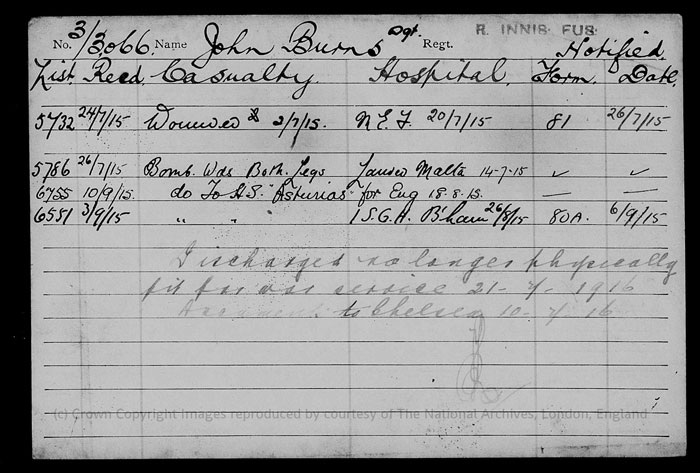 No. 3/3066 Name John Burns Sgt. Regt. R. INNIS. FUS.
Notified
List Recd. Casualty Hospital. Form. Date.
5732 24/7/15 Wounded 2/7/15. 20/7/15 81 26/7/15
5786 26/7/15 Bomb. Wds Both Legs Landed Malta 14-7-15 ✓ ✓
6755 10/9/15. do To H.S. "Asturias" for Eng 18.8.15. — —
6551 3/9/15 " " 1 S.G.H. B'ham 26/8/15 80A. 6/9/15
Discharged no longer physically
fit for war service 21-7-1916
to Chelsea 10-7-16
(c) Crown Copyright Images reproduced by courtesy of The National Archives, London, England